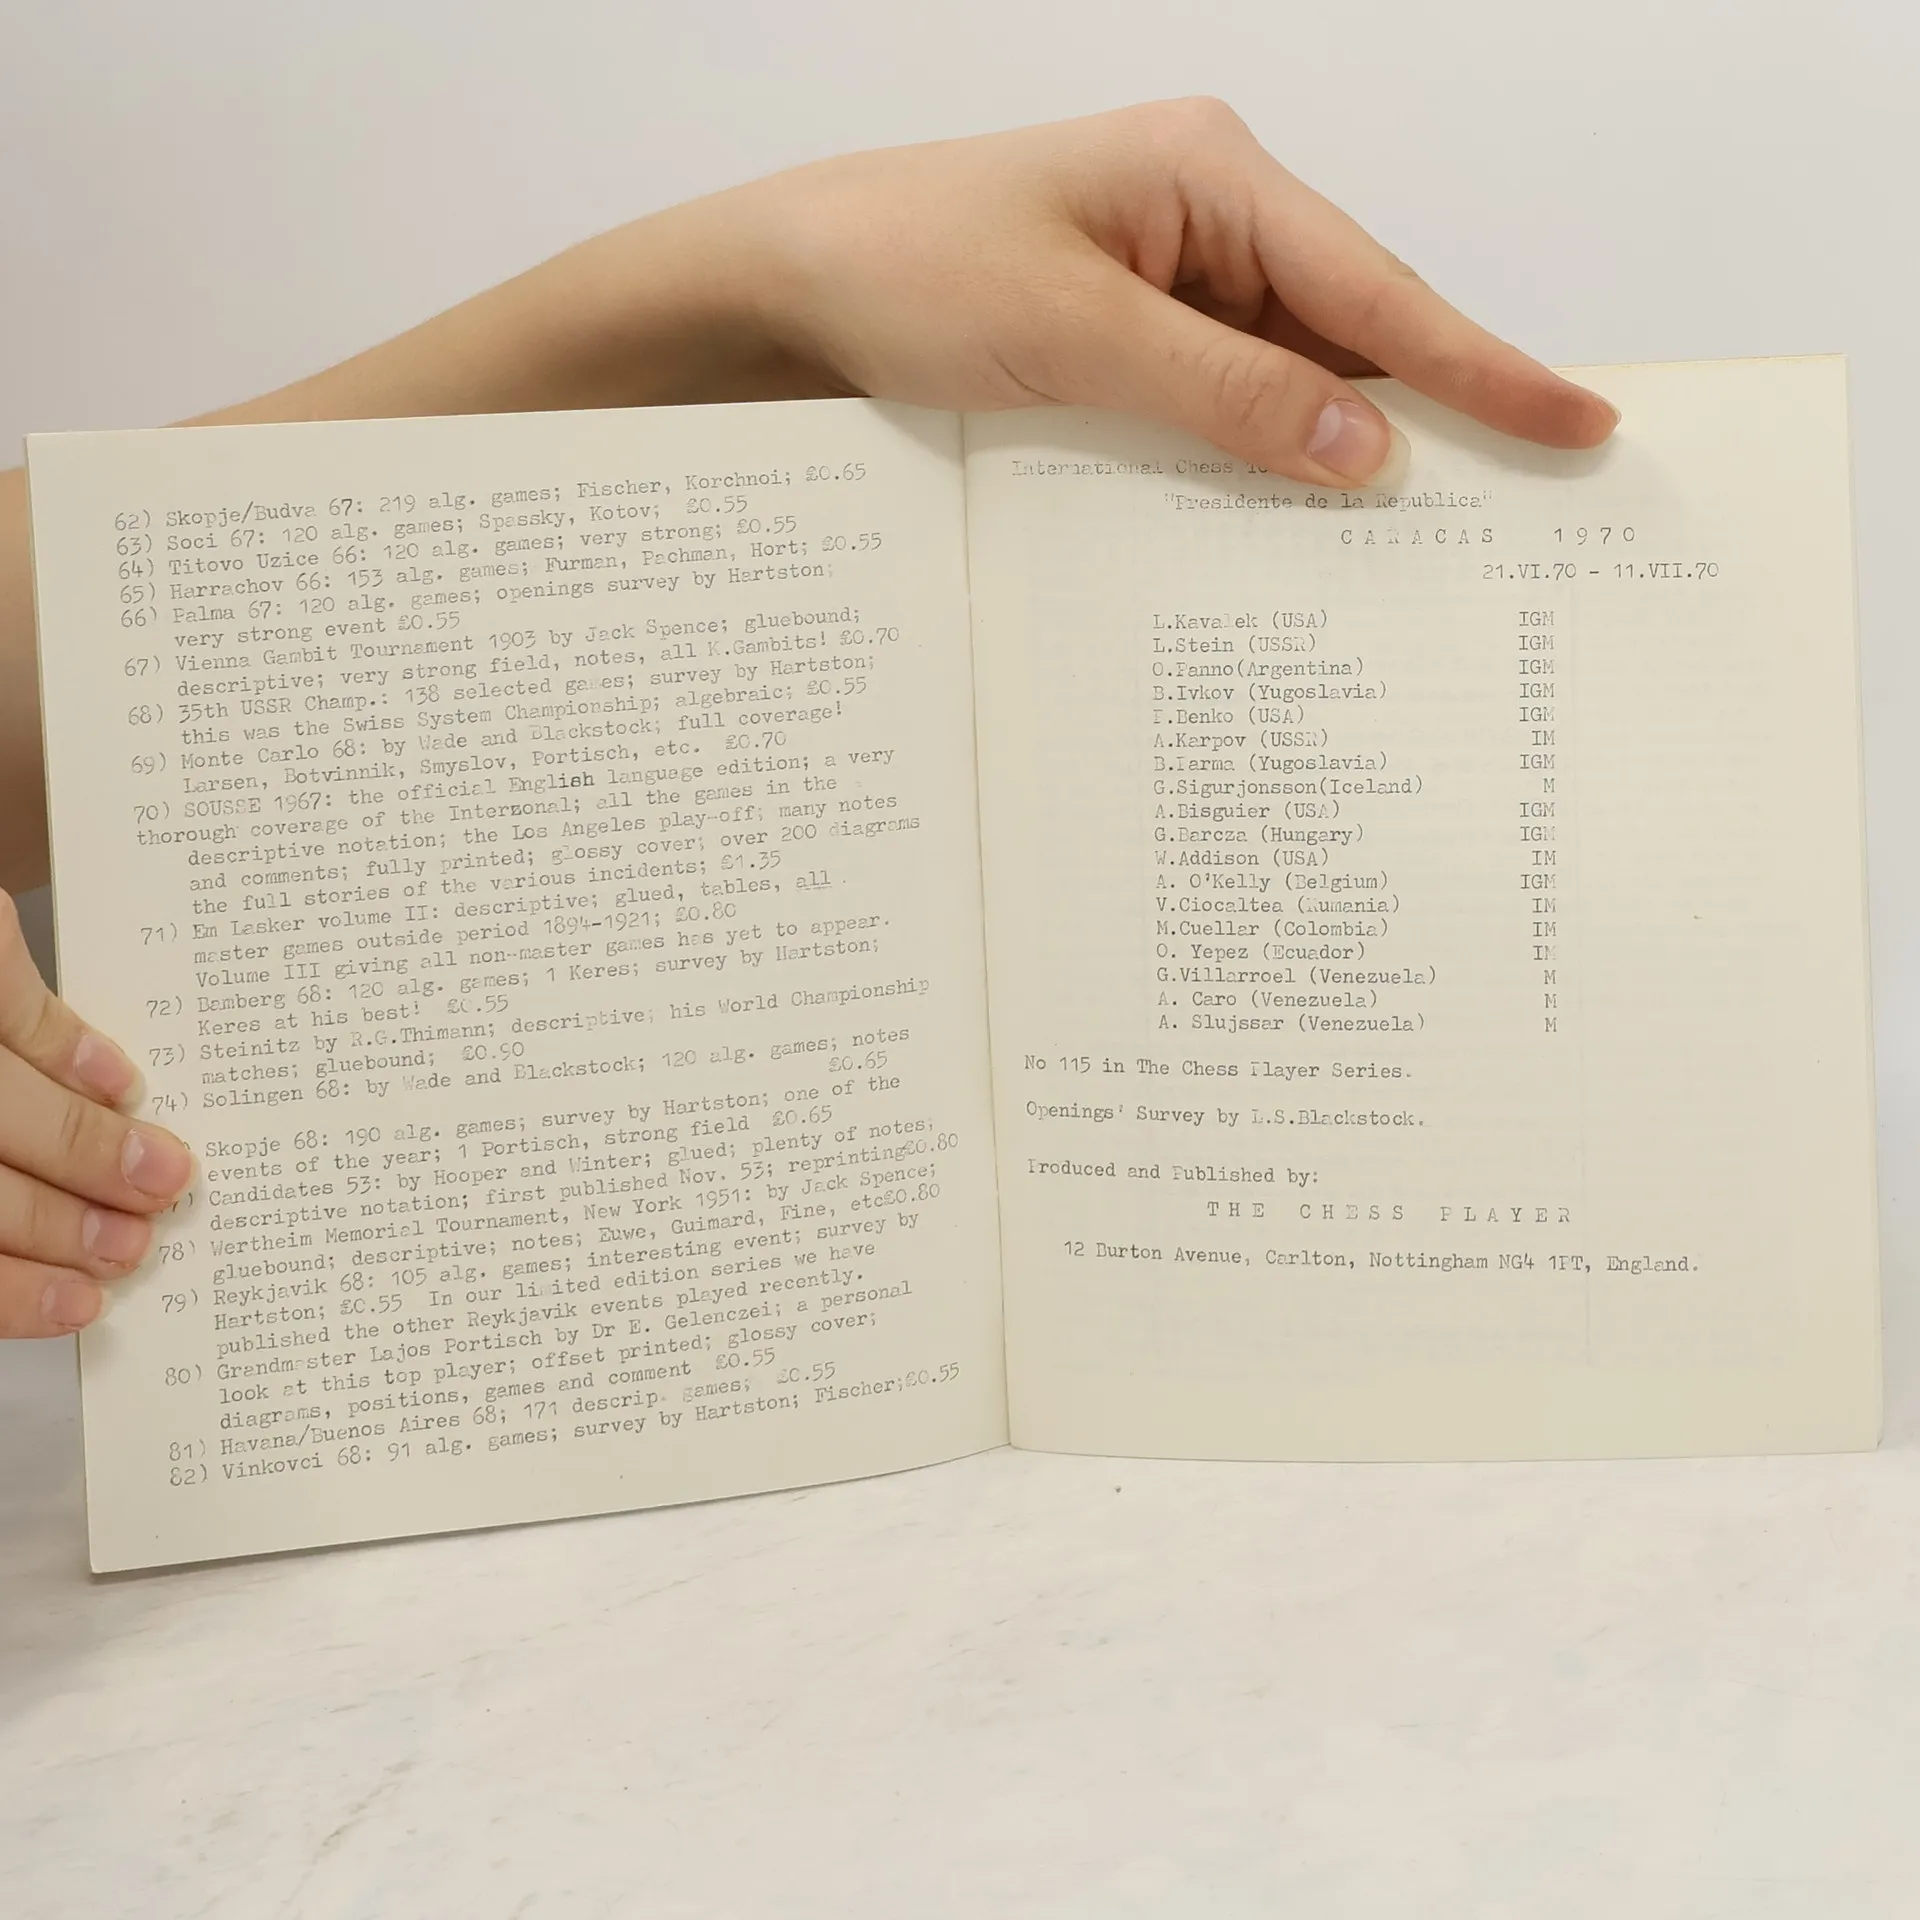 62) Skopje/Budva 67: 219 alg. games; Fischer, Korchnoi; £0.65
63) Soci 67: 120 alg. games; Spassky, Kotov; £0.55
64) Titovo Uzice 66: 120 alg. games; very strong; £0.55
65) Harrachov 66: 153 alg. games; Furman, Pachman, Hort; £0.55
66) Palma 67: 120 alg. games; openings survey by Hartston;
very strong event £0.55
67) Vienna Gambit Tournament 1903 by Jack Spence; gluebound;
descriptive; very strong field, notes, all K.Gambits! £0.70
68) 35th USSR Champ.: 138 selected games; survey by Hartston;
this was the Swiss System Championship; algebraic; £0.55
69) Monte Carlo 68: by Wade and Blackstock; full coverage!
Larsen, Botvinnik, Smyslov, Portisch, etc. £0.70
70) SOUSSE 1967: the official English language edition; a very
thorough coverage of the Interzonal; all the games in the
descriptive notation; the Los Angeles play-off; many notes
and comments; fully printed; glossy cover; over 200 diagrams
the full stories of the various incidents; £1.35
71) Em Lasker volume II: descriptive; glued, tables, all .
master games outside period 1894-1921; £0.80
Volume III giving all non-master games has yet to appear.
72) Bamberg 68: 120 alg. games; 1 Keres; survey by Hartston;
Keres at his best! £0.55
73) Steinitz by R.G.Thimann; descriptive; his World Championship
matches; gluebound; £0.90
74) Solingen 68: by Wade and Blackstock; 120 alg. games; notes
£0.65
) Skopje 68: 190 alg. games; survey by Hartston; one of the
events of the year; 1 Portisch, strong field £0.65
7) Candidates 53: by Hooper and Winter; glued; plenty of notes;
descriptive notation; first published Nov. 53; reprinting£0.80
78) Wertheim Memorial Tournament, New York 1951: by Jack Spence;
gluebound; descriptive; notes; Euwe, Guimard, Fine, etc£0.80
79) Reykjavik 68: 105 alg. games; interesting event; survey by
Hartston; £0.55 In our limited edition series we have
published the other Reykjavik events played recently.
80) Grandmaster Lajos Portisch by Dr E. Gelenczei; a personal
look at this top player; offset printed; glossy cover;
diagrams, positions, games and comment £0.55
81) Havana/Buenos Aires 68; 171 descrip. games; £0.55
82) Vinkovci 68: 91 alg. games; survey by Hartston; Fischer;£0.55
International Chess To
"Presidente de la Republica"
CARACAS 1970
21.VI.70 - 11.VII.70
L.Kavalek (USA) IGM
L.Stein (USSR) IGM
O.Panno(Argentina) IGM
B.Ivkov (Yugoslavia) IGM
P.Benko (USA) IGM
A.Karpov (USSR) IM
B.Parma (Yugoslavia) IGM
G.Sigurjonsson(Iceland) M
A.Bisguier (USA) IGM
G.Barcza (Hungary) IGM
W.Addison (USA) IM
A. O'Kelly (Belgium) IGM
V.Ciocaltea (Rumania) IM
M.Cuellar (Colombia) IM
O. Yepez (Ecuador) IM
G.Villarroel (Venezuela) M
A. Caro (Venezuela) M
A. Slujssar (Venezuela) M
No 115 in The Chess Player Series.
Openings' Survey by L.S.Blackstock.
Produced and Published by:
THE CHESS PLAYER
12 Burton Avenue, Carlton, Nottingham NG4 1PT, England.